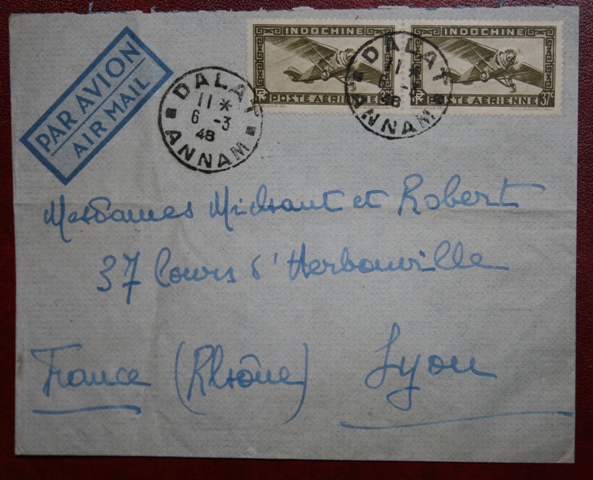 PAR AVION
AIR MAIL
INDOCHINE
POSTE AÉRIENNE
INDOCHINE
POSTE AÉRIENNE 37c
DALAT
11 *
6 -3
48
ANNAM
DALAT
11 *
-3
48
ANNAM
Mesdames et Robert
37 Cours d'Herbouville
France (Rhône) Lyon